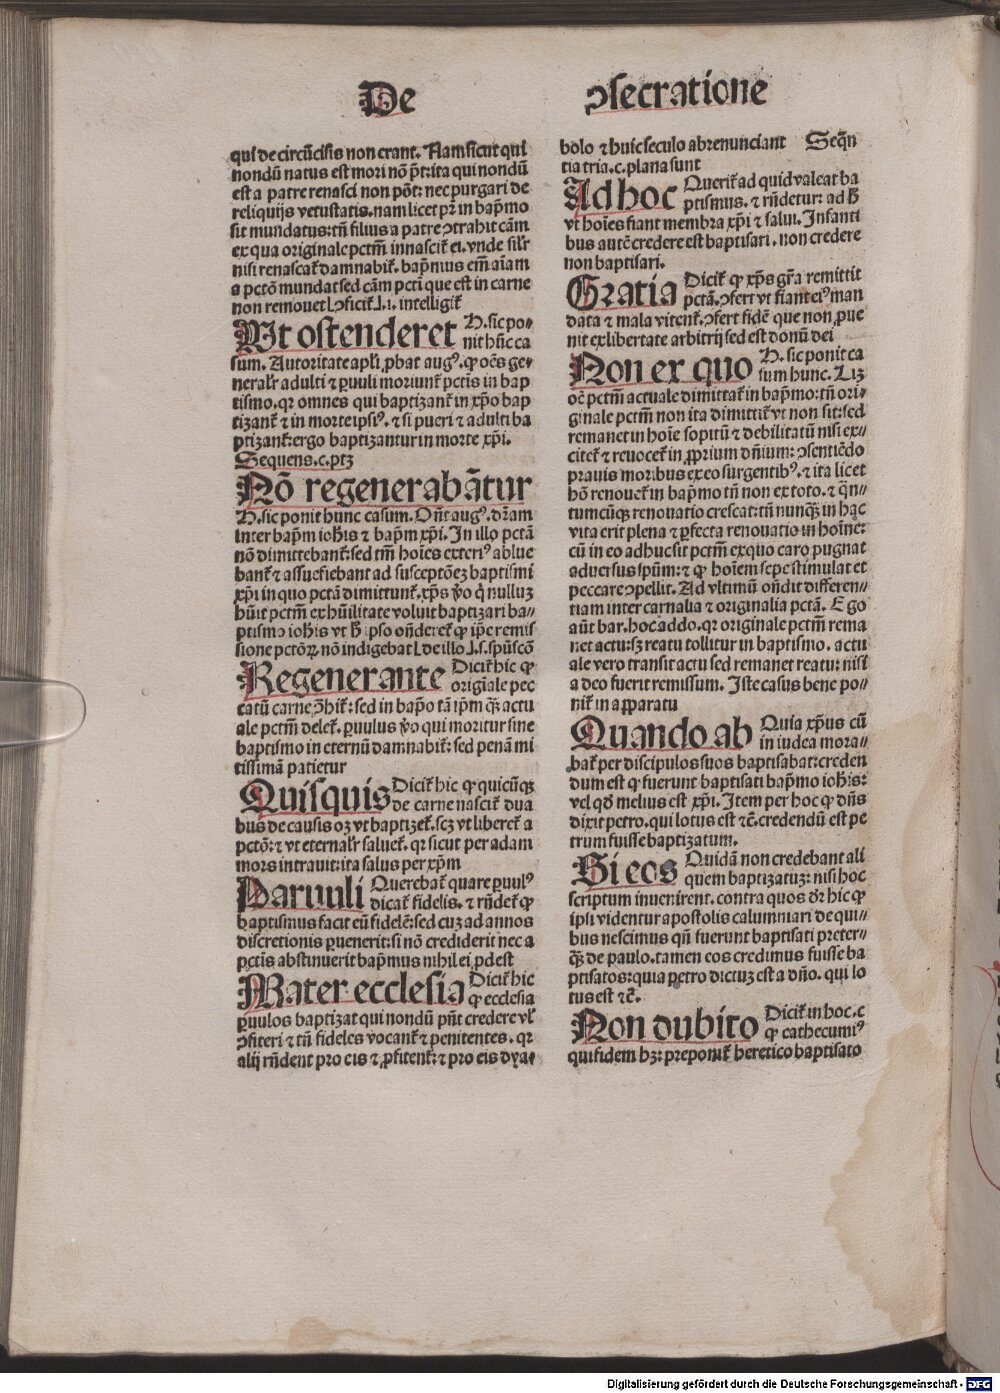 De ↄsecratione
qui de circūcisis non erant. Nam sicut qui
nondū natus est mori nō p̄t: ita qui nondū
est a patre renasci non pōt: nec purgari de
reliquijs vetustatis. nam licet pr̄ in bap̄mo
sit mundatus: tn̄ filius a patre ↄtrahit cām
ex qua originale pctm̄ innascit̄ ei. vnde silr̄
nisi renascat̄ damnabit̄. bap̄mus em̄ aīam
a pctō mundat sed cām pcti que est in carne
non remouet
Ut ostenderet H. sic po⸗
nit hūc ca
sum. Autoritate apl̓i ꝓbat augꝰ. ꝙ oēs ge⸗
neralr̄ adulti ⁊ ꝑuuli moriunt̄ pctis in bap
tismo. qr omnes qui baptizant̄ in xp̄o bap
tizant̄ ⁊ in morte ipsiꝰ. ⁊ si pueri ⁊ adulti ba
ptizant̄: ergo baptizantur in morte xp̄i.
Sequens .c. ptꝫ
Nō regenerabātur
H. sic ponit hunc casum. On̄t augꝰ. dr̄am
inter bap̄m ioh̄is ⁊ bap̄m xp̄i. In illo pctā
nō dimittebant̄: sed tm̄ hoīes exteriꝰ ablue
bant̄ ⁊ assuefiebant ad susceptōeꝫ baptismi
xp̄i in quo pctā dimittunt̄. xp̄s ꝟo q̄ nulluꝫ
hūit pctm̄ ex hūilitate voluit baptizari ba⸗
ptismo ioh̄is vt h̄ ipso on̄deret̄ ꝙ ip̄e remis
sione pctōꝝ nō indigebat
Regenerante Dicit̄ hic ꝙ
origīale pec
catū carne ꝓhit̄: sed in bap̄o tā ip̄m qꝫ actu
ale pctm̄ delet̄. ꝑuulus ꝟo qui moritur sine
baptismo in eternū damnabit̄: sed penā mi
tissimā patietur
Quisquis Dicit̄ hic ꝙ quicūqꝫ
de carne nascit̄ dua
bus de causis oꝫ vt baptizet̄. scꝫ vt liberet̄ a
pctō: ⁊ vt eternalr̄ saluet̄. qr sicut per adam
mors intrauit: ita salus per xp̄m
Paruuli Querebat̄ quare ꝑuulꝰ
dicat̄ fidelis. ⁊ rn̄det̄ ꝙ
baptismus facit eū fidelē: sed cuꝫ ad annos
discretionis ꝑuenerit: si nō crediderit nec a
pctis abstinuerit bap̄mus nihil ei ꝓdest
Mater ecclesia Dicit̄ hic
ꝙ ecclesia
ꝑuulos baptizat qui nondū pn̄t credere vl̓
ↄfiteri ⁊ tn̄ fideles vocant̄ ⁊ penitentes. qr
alij rn̄dent pro eis ⁊ ꝓfitent̄: ⁊ pro eis dyaꝰ
bolo ⁊ huic seculo abrenunciant Seqn̄
tia tria .c. plana sunt
Ad hoc Querit̄ ad quid valeat ba
ptismus. ⁊ rn̄detur: ad h̄
vt hoīes fiant membra xp̄i ⁊ salui. Infanti
bus autē credere est baptisari. non credere
non baptisari.
Gratia Dicit̄ ꝙ xp̄s gr̄a remittit
pctā. ↄfert vt fiant eiꝰ man
data ⁊ mala vitent̄. ↄfert fidē que non ꝓue
nit ex libertate arbitrij sed est donū dei
Non ex quo H. sic ponit ca
sum hunc. Lꝫ
oē pctm̄ actuale dimittat̄ in bap̄mo: tn̄ ori⸗
ginale pctm̄ non ita dimittit̄ vt non sit: sed
remanet in hoīe sopitū ⁊ debilitatū nisi ex⸗
citet̄ ⁊ reuocet̄ in ꝓprium dn̄ium: ↄsentiēdo
prauis moribus ex eo surgentibꝰ. ⁊ ita licet
hō renouet̄ in bap̄mo tn̄ non ex toto. ⁊ qn̄⸗
tumcūqꝫ renouatio crescat: tn̄ nunqꝫ in hac
vita erit plena ⁊ ꝑfecta renouatio in hoīne:
cū in eo adhuc sit pctm̄ ex quo caro pugnat
aduersus sp̄um: ⁊ ꝙ hoīem sepe stimulat et
peccare ↄpellit. Ad vltimū on̄dit differen⸗
tiam inter carnalia ⁊ originalia pctā. Ego
aūt bar. hoc addo. qr originale pctm̄ rema
net actu: sꝫ reatu tollitur in baptismo. actu
ale vero transit actu sed remanet reatu: nisi
a deo fuerit remissum. Iste casus bene po⸗
nit̄ in apparatu
Quando ab Quia xp̄us cū
in iudea mora⸗
bat̄ per discipulos suos baptisabat: creden
dum est ꝙ fuerunt baptisati bap̄mo ioh̄is:
vel qd̓ melius est xp̄i. Item per hoc ꝙ dn̄s
dixit petro. qui lotus est ⁊c̄. credendū est pe
trum fuisse baptizatum.
Si eos Quidā non credebant ali
quem baptizatuꝫ: nisi hoc
scriptum inuenirent. contra quos dr̄ hic ꝙ
ipsi videntur apostolis calumniari de qui⸗
bus nescimus qn̄ fuerunt baptisati preter⸗
qꝫ de paulo. tamen eos credimus fuisse ba
ptisatos: quia petro dictuꝫ est a dn̄o. qui lo
tus est ⁊c̄.
Non dubito Dicit̄ in hoc .c
ꝙ cathecumiꝰ
qui fidem hꝫ: preponit̄ heretico baptisato
Digitalisierung gefördert durch die Deutsche Forschungsgemeinschaft - DFG